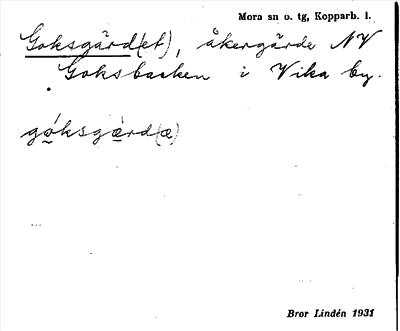 Mora sn o. tg, Kopparb. l.
Goksgärd(et), åkergärde NV
Goksbacken i Vika by.
gó̱ksgæ̱̀rd(æ)
Bror Lindén 1931